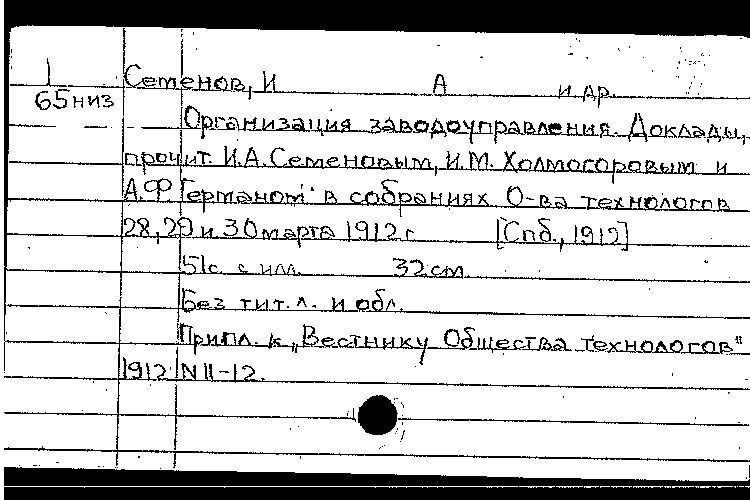 1
Семенов, И А и др.
65низ
Организация заводоуправления. Доклады,
прочит. И.А. Семеновым, И.М. Холмогоровым и
А.Ф. Германом в собраниях О-ва технологов
28, 29 и 30 марта 1912 г. [Спб., 1912]
51с. с илл. 32 см.
Без тит. л. и обл.
Прилл. к „Вестнику Общества технологов"
1912 N 11-12.